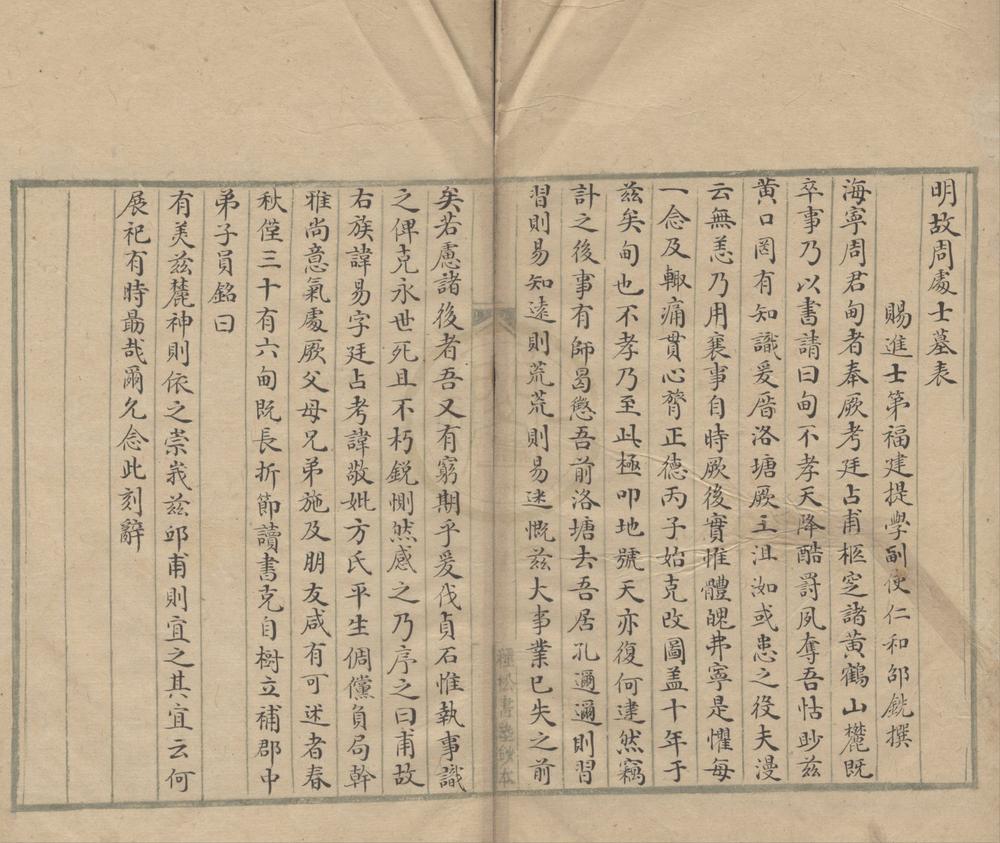 明故周處士墓表
賜進士第福建提學副使仁和邵銳撰
海寧周君甸者奉厥考廷占甫柩窆諸黃鶴山麓既
卒事乃以書請曰甸不孝天降酷罸夙奪吾怙眇兹
黃口罔有知識爰厝洛塘厥土沮洳或患之役夫漫
云無恙乃用襄事自時厥後實惟體魄弗寧是懼每
一念及輙痛貫心膂正德丙子始克改圖盖十年于
兹矣甸也不孝乃至此極叩地號天亦復何逮然竊
計之後事有師曷懲吾前洛塘去吾居孔邇邇則習
習則易知遠則荒荒則易迷慨兹大事業已失之前
矣若慮諸後者吾又有窮期乎爰伐貞石惟執事識
之俾克永世死且不朽銳惻然感之乃序之曰甫故
右族諱易字廷占考諱敬妣方氏平生倜儻負局幹
雅尚意氣處厥父母兄弟施及朋友咸有可述者春
秋僅三十有六甸既長折節讀書克自樹立補郡中
弟子員銘曰
有美兹麓神則依之崇峩兹邱甫則宜之其宜云何
展祀有時勗哉爾允念此刻辭
種松書塾鈔本